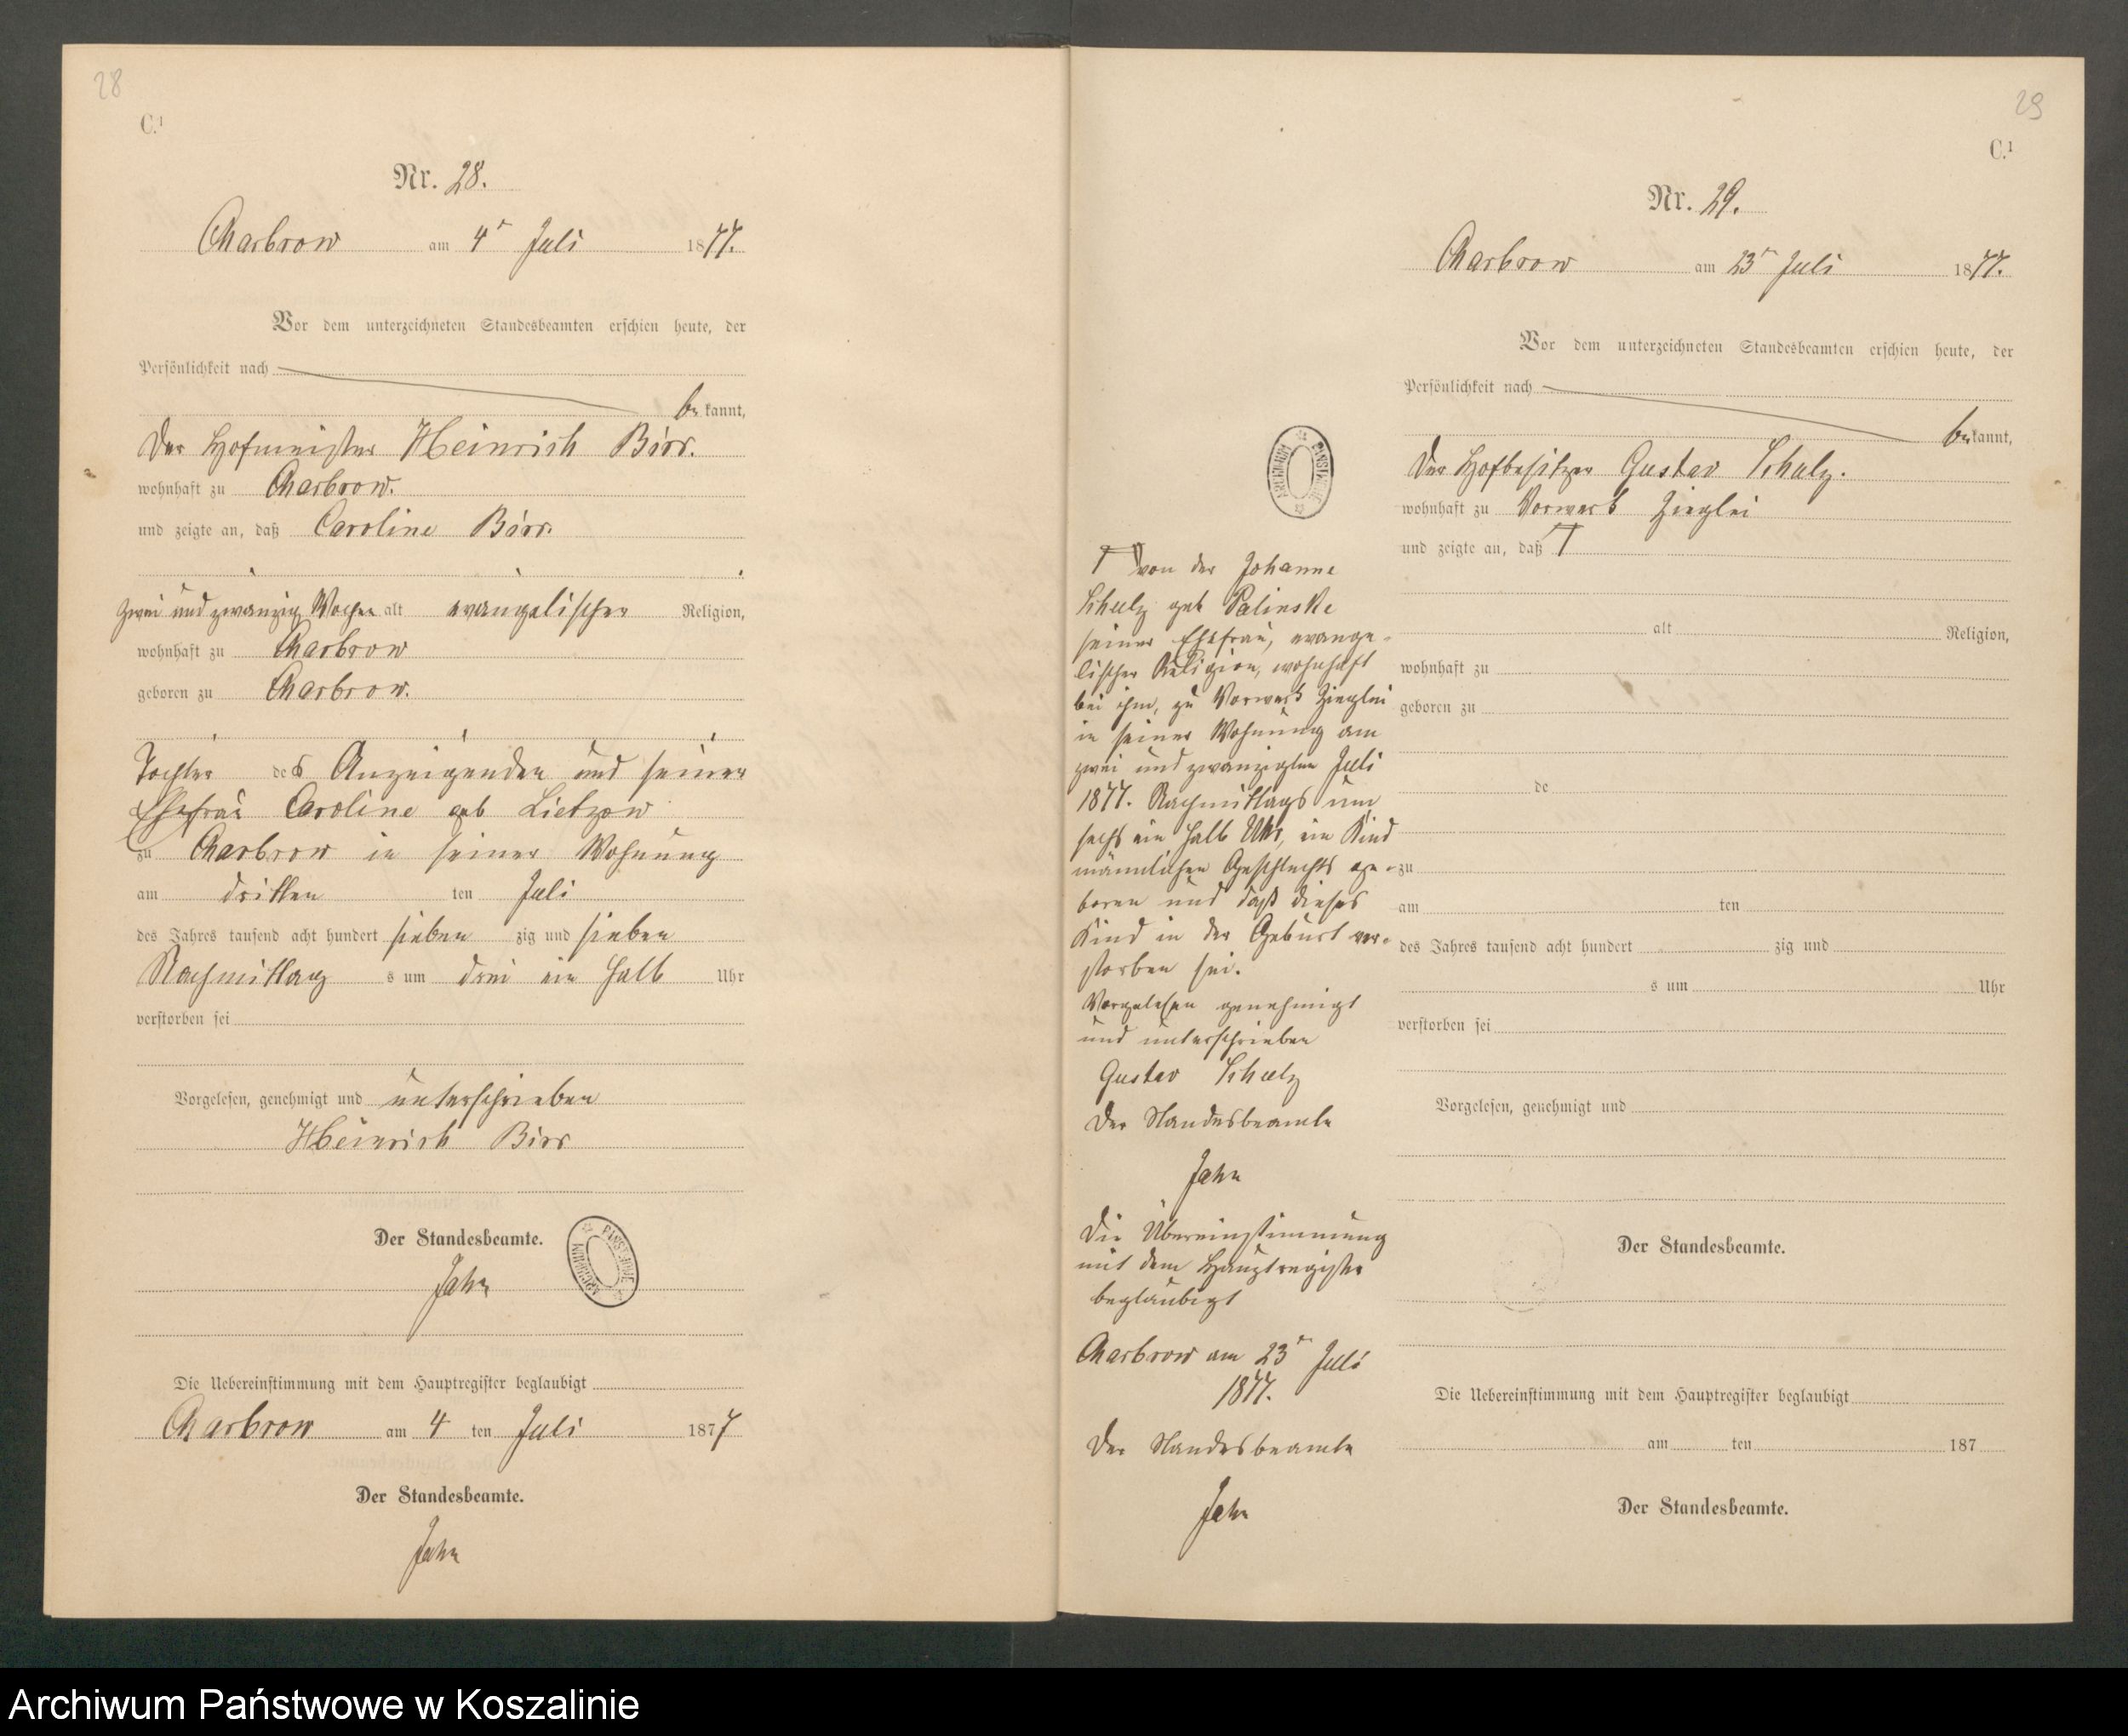 28
C.¹
Nr. 28.
Charbrow am 4ᵗ Juli 1877.
Vor dem unterzeichneten Standesbeamten erschien heute, der
Persönlichkeit nach
bekannt,
Der Hofmeister Heinrich Birr.
wohnhaft zu Charbrow.
und zeigte an, daß Caroline Birr.
zwei und zwanzig Wochen alt evangelischer Religion,
wohnhaft zu Charbrow
geboren zu Charbrow.
Tochter des Anzeigenden und seiner
Ehefrau Caroline geb Lietzow
zu Charbrow in seiner Wohnung
am dritten ten Juli
des Jahres tausend acht hundert sieben zig und sieben
Nachmittag s um drei ein halb Uhr
verstorben sei
Vorgelesen, genehmigt und unterschrieben
Heinrich Birr
Der Standesbeamte.
Jahn
ARCHIWUM PAŃSTWOWE
Die Uebereinstimmung mit dem Hauptregister beglaubigt
Charbrow am 4 ten Juli 1877
Der Standesbeamte.
Jahn
29
C.¹
Nr. 29.
Charbrow am 23ᵗ Juli 1877.
Vor dem unterzeichneten Standesbeamten erschien heute, der
Persönlichkeit nach
bekannt,
Der Hofbesitzer Gustav Schulz.
wohnhaft zu Vorwerk Zieglei
und zeigte an, daß
alt Religion,
wohnhaft zu
geboren zu
de
zu
am ten
des Jahres tausend acht hundert zig und
s um Uhr
verstorben sei
Vorgelesen, genehmigt und
Der Standesbeamte.
Die Uebereinstimmung mit dem Hauptregister beglaubigt
am ten 187
Der Standesbeamte.
ARCHIWUM PAŃSTWOWE
von der Johanne
Schulz geb Palinske
seiner Ehefrau, evange-
lischer Religion, wohnhaft
bei ihm, zu Vorwerk Zieglei
in seiner Wohnung am
zwei und zwanzigten Juli
1877. Nachmittags um
sechs ein halb Uhr, ein Kind
männlichen Geschlechts ge-
boren und daß dieses
Kind in der Geburt ver-
storben sei.
Vorgelesen genehmigt
und unterschrieben
Gustav Schulz
Der Standesbeamte
Jahn
Die Übereinstimmung
mit dem Hauptregister
beglaubigt
Charbrow am 23ᵗ Juli
1877.
Der Standesbeamte
Jahn
Archiwum Państwowe w Koszalinie